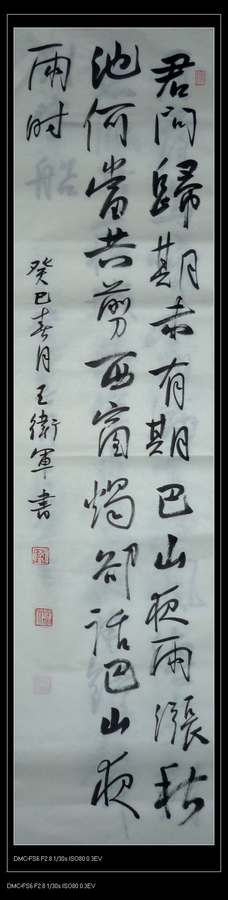 君问歸期未有期巴山夜雨漲秋
池何當共剪西窗燭卻話巴山夜
雨时
癸巳春月王衛軍書
DMC-FS6 F2.8 1/30s ISO80 0.3EV
DMC-FS6 F2.8 1/30s ISO80 0.3EV